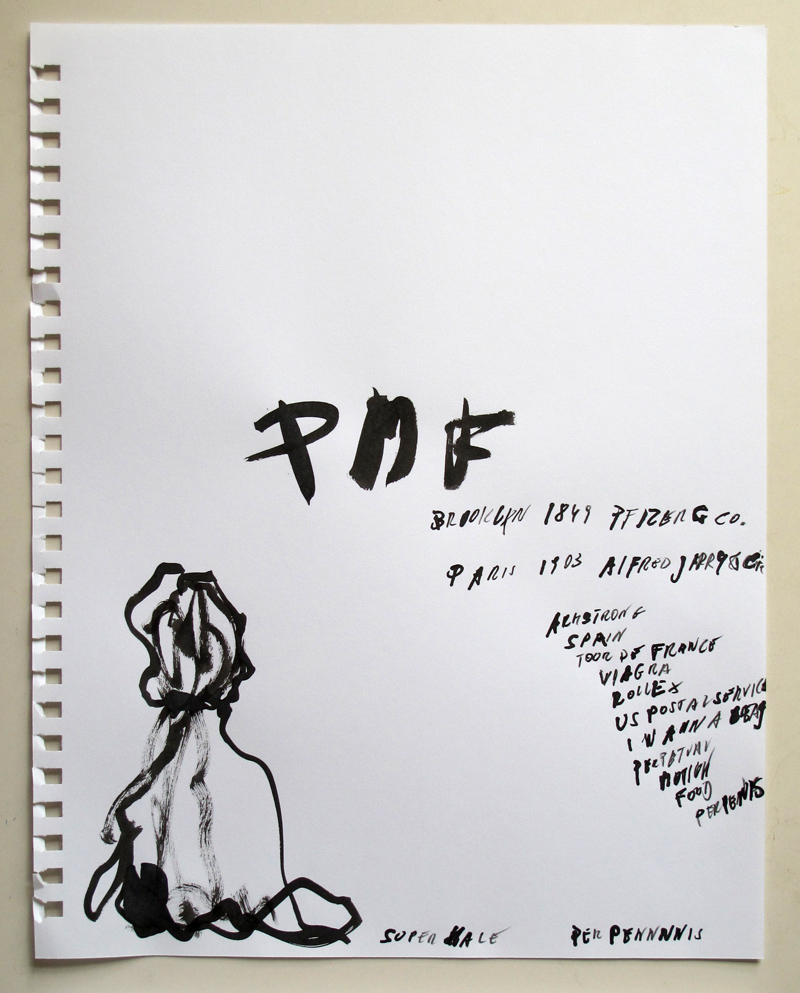 PMF
BROOKLYN 1849 PFIZER G CO.
PARIS 1903 ALFRED JARRY &
ARMSTRONG
SPAIN
TOUR DE FRANCE
VIAGRA
ROLLEX
US POSTAL SERVICE
I WANNA
PERPETUAL
MOTION
FOOD
PERPENIS
SUPER MALE PER PENNNNIS